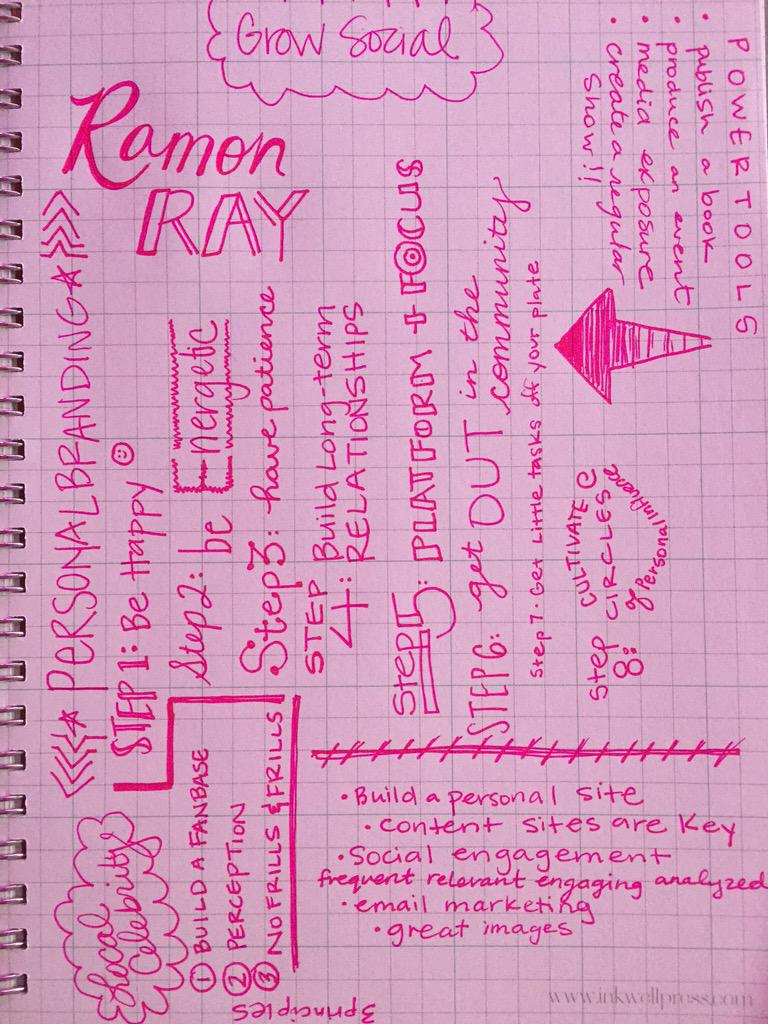 Grow Social
Ramon
RAY
PERSONAL BRANDING
STEP 1: Be Happy
Step 2: be Energetic
Step 3: have patience
STEP 4: Build Long-term
RELATIONSHIPS
Step 5: PLATFORM + FOCUS
STEP 6: get OUT in the
community
Step 7. Get Little tasks off your plate
STEP 8: CULTIVATE
CIRCLES
of Personal influence
POWER TOOLS
• publish a book
• produce an event
• media exposure
• create a regular
Show!!
Local
Celebrity
3 principles
① BUILD A FANBASE
② PERCEPTION
③ NO FRILLS & FRILLS
• Build a personal site
• content sites are key
• Social engagement
frequent relevant engaging analyzed
• email marketing
• great images
www.inkwellpress.com